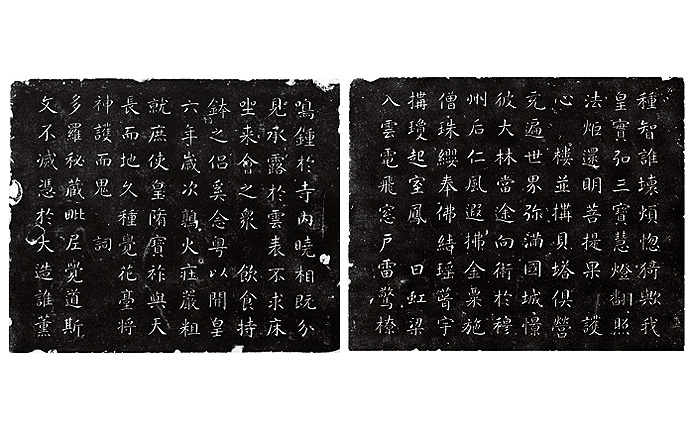 鳴鍾於寺內曉相既分
見承露於雲表不求床
坐來會之衆 飲食持
鉢之侶奚念粵以開皇
六年歲次鶉火莊嚴粗
就庶使皇隋寶祚與天
長而地久種覺花臺將
神護而鬼 詞
多羅秘藏毗尼覺道斯
文不滅憑於大造誰薰
種智誰壞煩惱猗歟我
皇實弘三寶慧燈翻照
法炬還明菩提果 護
心 樓並構貝塔俱營
充遍世界彌滿國城憬
彼大林當途向術於穆
州后仁風遐拂金粟施
僧珠纓奉佛結瑤葺宇
構瓊起室鳳 日虹梁
入雲電飛窓戶雷驚橑